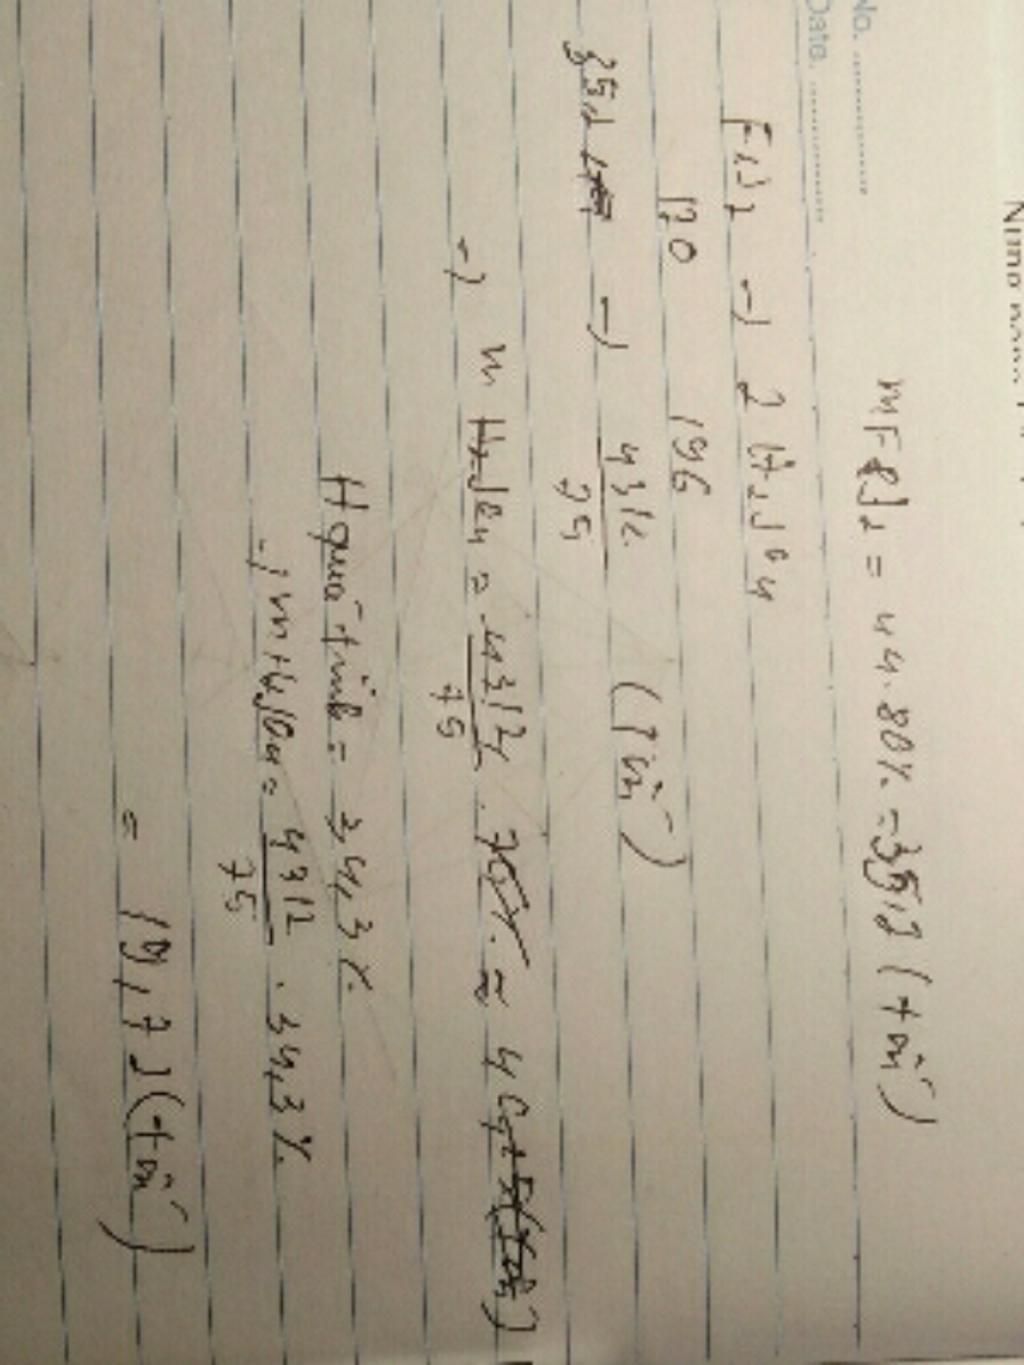 No.
Date.
mFeS₂ = 44.80% = 35,2 (tấn)
FeS₂ → 2H₂SO₄
120 196
35,2 → 4312/75 (Tấn)
→ mH₂SO₄ = 4312/75 .
H quá trình = 34,3%
→ mH₂SO₄ = 4312/75 . 34,3%
= 19,72 (tấn)